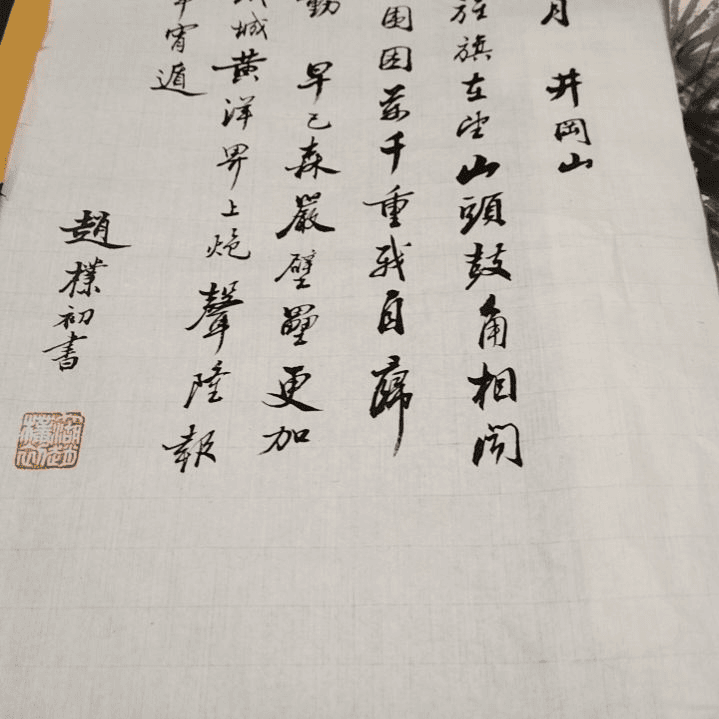 月 井岡山
旌旗在望山頭鼓角相聞
圍困萬千重我自巋
動 早已森嚴壁壘更加
成城黄洋界上炮聲隆報
軍宵遁
趙樸初書